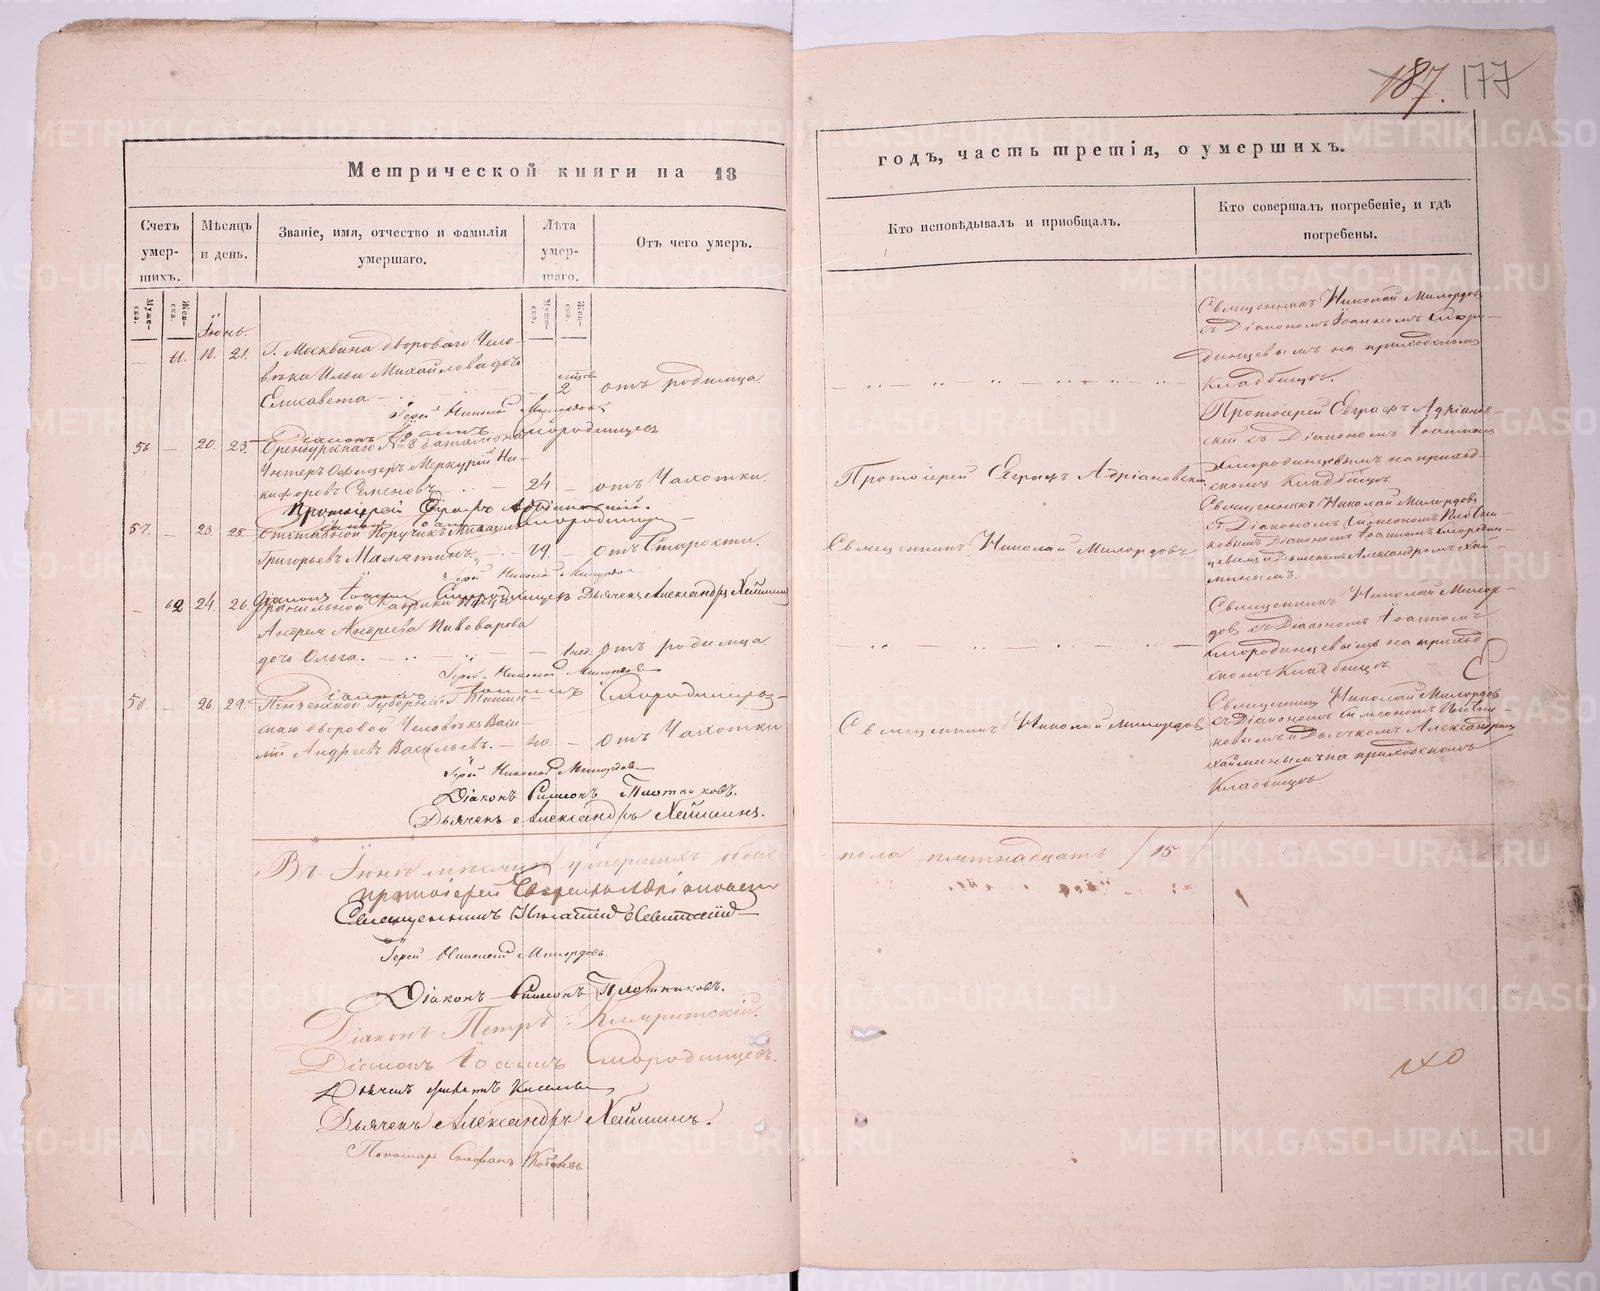 187. 177
Метрической книги на 18
годъ, часть третія, о умершихъ.
Счетъ умер-шихъ.
Мѣсяцъ и день.
Званіе, имя, отчество и фамилія умершаго.
Лѣта умер-шаго.
Отъ чего умеръ.
Кто исповѣдывалъ и пріобщалъ.
Кто совершалъ погребеніе, и гдѣ погребены.
Муже-ска.
Жен-ска.
Муже-ска.
Жен-ска.
Іюнь
61. 18. 21. Г. Москвина двороваго Чело-
вѣка Ильи Михайлова дочь
Елисавета 2 отъ родимца.
Іерей Николай Милордовъ
Діаконъ Іоаннъ Смородинцевъ
Священникъ Николай Милордовъ
съ Діакономъ Іоанномъ Сморо-
динцевымъ на приходскомъ
Кладбищѣ.
56 20. 23. Оренбургскаго № 8 баталіона
Унтеръ Офицеръ Меркурій Ни-
кифоровъ Семеновъ 24 отъ Чахотки.
Протоіерей Евграфъ Адріановскій.
Протоіерей Евграфъ Адріановскій
Протоіерей Евграфъ Адріанов-
скій съ Діакономъ Іоанномъ
Смородинцевымъ на приход-
скомъ Кладбищѣ.
57. 23. 25. Отставной Поручикъ
Григорьевъ 79. отъ Старости.
Іерей Николай Милордовъ
Діаконъ Іоаннъ Смородинцевъ Дьячекъ Александръ
Священникъ Николай Милордовъ
Священникъ Николай Милордовъ
съ Діакономъ Симеономъ Плотни-
ковымъ Діакономъ Іоанномъ Смородин-
цевымъ и Дьячкомъ Александромъ
62 24. 26. Гранильной Фабрики
Андрея Андреева Пивоварова
дочь Ольга. 1 нед. отъ родимца
Іерей Николай Милордовъ
Діаконъ Іоаннъ Смородинцевъ
Священникъ Николай Милор-
довъ съ Діакономъ Іоанномъ
Смородинцевымъ на приход-
скомъ Кладбищѣ
58. 26. 29. Пензенской Губерніи Г.
дворовой Человѣкъ Васи-
лій Андреевъ Васильевъ. 40. отъ Чахотки
Іерей Николай Милордовъ
Діаконъ Симеонъ Плотниковъ.
Дьячекъ Александръ
Священникъ Николай Милордовъ
Священникъ Николай Милордовъ
съ Діакономъ Симеономъ Плотни-
ковымъ и Дьячкомъ Александромъ
на приходскомъ
Кладбищѣ
Въ Іюнѣ мѣсяцѣ умершихъ обоего пола пятнадцать /15
Протоіерей Евграфъ Адріановскій
Священникъ Игнатій Левитскій
Іерей Николай Милордовъ
Діаконъ Симеонъ Плотниковъ.
Діаконъ Петръ
Діаконъ Іоаннъ Смородинцевъ.
Дьячекъ
Дьячекъ Александръ
Пономарь